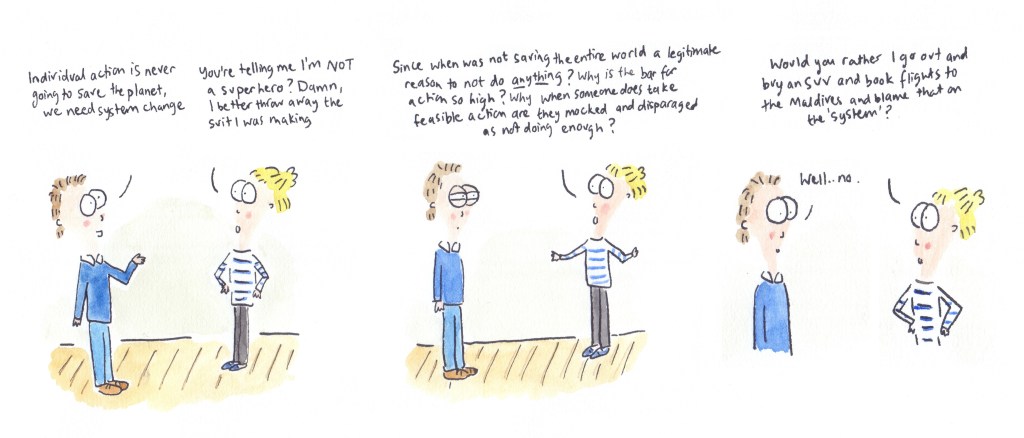 Individual action is never
going to save the planet,
we need system change
You're telling me I'm NOT
a superhero? Damn,
I better throw away the
suit I was making
Since when was not saving the entire world a legitimate
reason to not do anything? Why is the bar for
action so high? Why when someone does take
feasible action are they mocked and disparaged
as not doing enough?
Would you rather I go out and
buy an SUV and book flights to
the Maldives and blame that on
the 'system'?
Well..no.